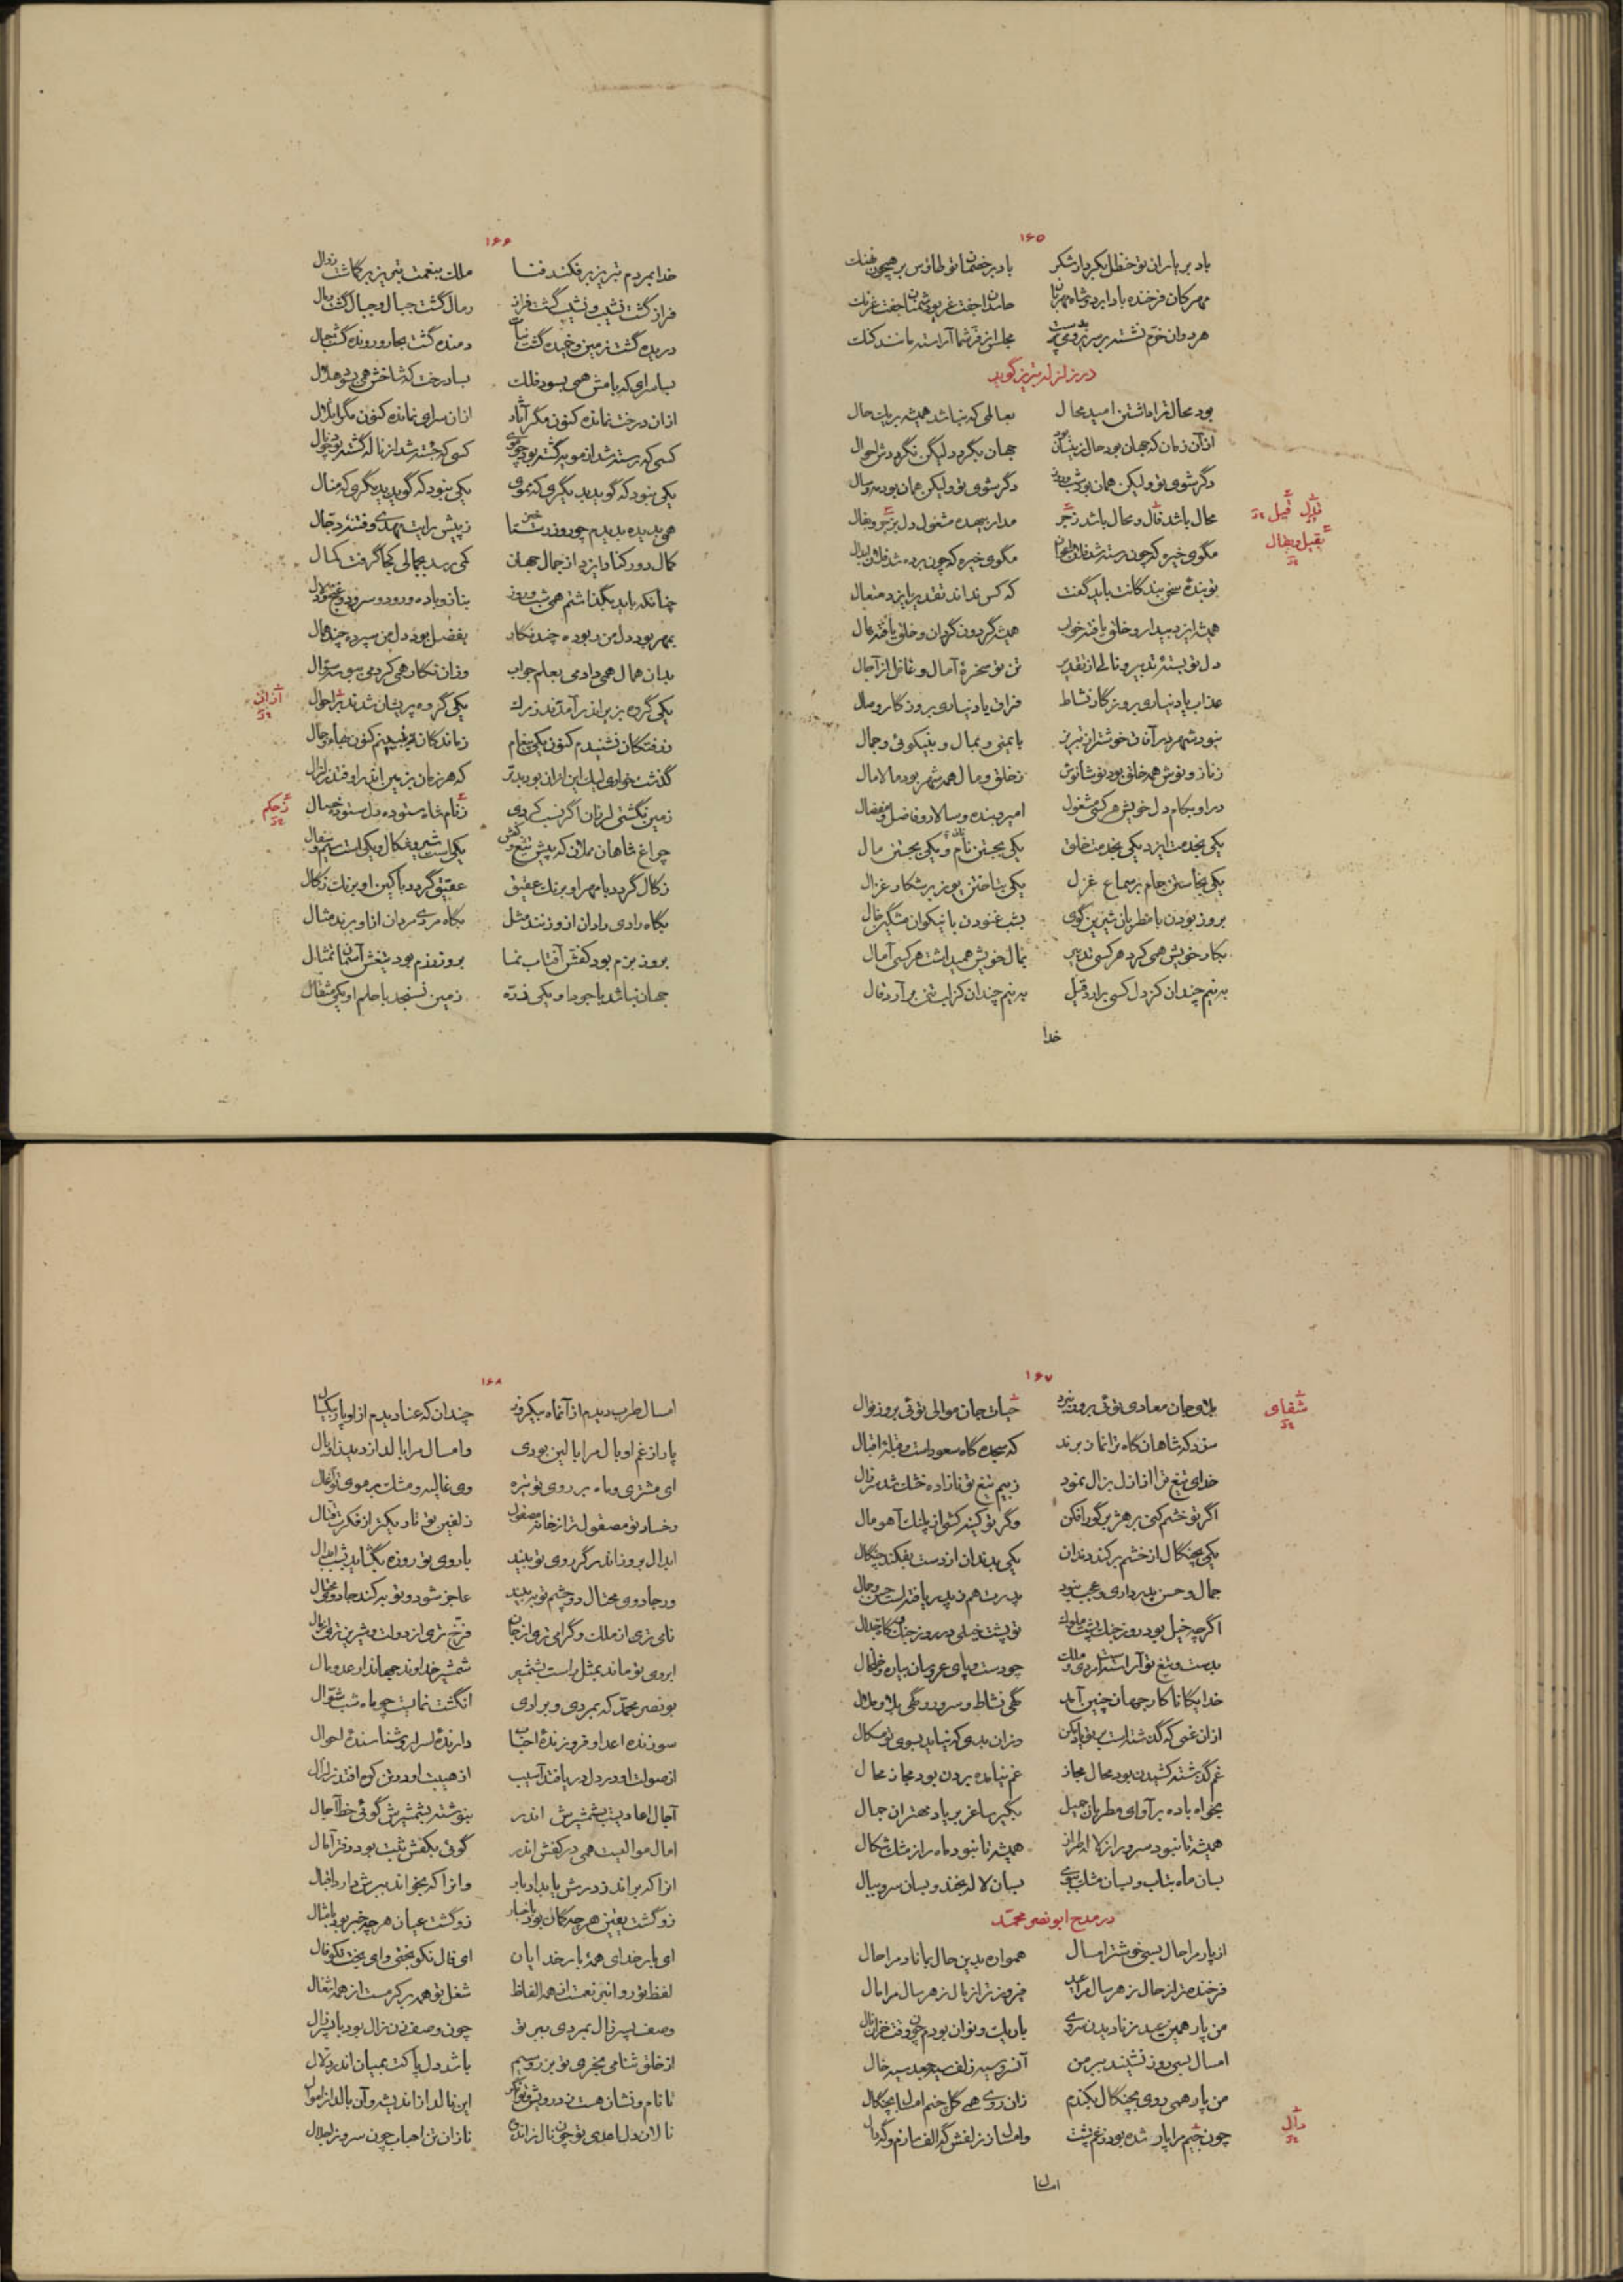 ۱۶۵
باد بر یاران تو حنظل بکردار شکر باد بر خصمان تو طاوس بر همچون
مهرکان فرخنده باد ابر شاه مهربان
هر دوان خرم نشسته
در زلزله تبریز گوید
بود محال ترا داشتن امید محال بعالمی که نباشد همیشه بر یک حال
از آن زمان که جهان بود حال زینسان بود جهان بگردد لیکن نگرددش احوال
دگر شوی تو ولیکن همان بود شب و روز دگر شوی تو ولیکن همان بود مه و سال
محال باشد فال و محال باشد زجر مدار بیهده مشغول دل بزجر و بفال
مگوی خیره که چون رسته شد فلان مگوی خیره که چون برده شد فلان
تو بندهٔ سخن بندگانت باید گفت که کس نداند تقدیر ایزد متعال
همیشه ایزد بیدار و خلق یافته خواب همیشه گردون گردان و خلق یافته هال
دل تو بستهٔ تدبیر و نالد از تقدیر تن تو سخرهٔ آمال و غافل از آجال
عذاب یاد نیاری بروزگار نشاط فراق یاد نیاری بروزگار وصال
نبود شهر در آفاق خوشتر از تبریز بایمنی و بمال و بنیکوئی و جمال
ز ناز و نوش همه خلق بود نوشانوش ز خلق و مال همه شهر بود مالامال
در او بکام دل خویش هر کسی مشغول امیر و بنده و سالار و فاضل و مفضال
یکی بخدمت ایزد یکی بخدمت خلق یکی بجستن نام و یکی بجستن مال
یکی بخواستن جام بر سماع غزل یکی بتاختن یوز بر شکار غزال
بروز بودن با مطربان شیرین گوی بشب غنودن با نیکوان مشگین خال
بکار خویش همی کرد هر کسی تدبیر بمال خویش همی داشت هر کسی آمال
به نیم چندان کز دل کسی برآرد قیل به نیم چندان کز لب تنی برآرد قال
خدا
تذال قیل
بقیل و بقال
۱۶۶
خدا بمردم تبریز بر فکند فنا ملک بنعمت تبریز بر گماشت زوال
فراز گشت نشیب و نشیب گشت فراز رمال گشت جبال و جبال گشت رمال
دریده گشت زمین و خمیده گشت نبات دمنده گشت بحار و رونده گشت جبال
بسا سرای که بامش همی بسود فلک بسا درخت که شاخش همی بسود هلال
از آن درخت نمانده کنون مگر آثار از آن سرای نمانده کنون مگر اطلال
کسی که رسته شد از مویه گشته بود چو موی کسی که جسته شد از ناله گشته بود چو نال
یکی نبود که گوید بدیگری که موی یکی نبود که گوید بدیگری که منال
همی بدیده بدیدم چو روز رستاخیز ز پیش رایت مهدی و فتنهٔ دجال
کمال دور کناد ایزد از جمال جهان کمی رسد بجمالی کجا گرفت کمال
چنانکه باید بگذاشتم همی شب و روز بناز و باده و رود و سرود و غنج و دلال
بمهر بود دل من ربوده چند نگار بفضل بود دل من سپرده چند همال
بدان همال همی دادمی بعلم جواب وز آن نگار همی کردمی ببوسه سؤال
یکی گروه بزیر اندر آمدند ز مرگ یکی گروه پریشان شدند از احوال
ز رفتگان نشنیدم کنون یکی پیغام ز ماندگان نه ببینم کنون بها و جمال
گذشت خواری لیک این از آن بود بدتر که هر زمان بزمین اندر اوفتد زلزال
زمین نگشتی لرزان اگر نسب کردی ز نام شاه ستوده دل ستوده خصال
چراغ شاهان مملان که پیش تیغ و کفش یکی است شیر و شکال و یکی است سیم و سفال
زکال گردد با مهر او برنگ عقیق عقیق گردد با کین او برنگ زکال
بگاه رادی رادان از او زنند مثل بگاه مردی مردان از او برند مثال
بروز بزم بود کفش آفتاب نما بروز رزم بود تیغش آسمان تمثال
جهان نباشد با جود او یکی ذره زمین نسنجد با حلم او یکی مثقال
از آن
ز حکم
۱۶۷
بلای جان معادی توئی بروز نبرد حیات جان موالی توئی بروز نوال
سزد که شاهان گاه ترا نماز برند که سجده گاه سعود است و قبلهٔ اقبال
خدای تیغ ترا از ازل بزال نمود ز بیم تیغ تو نازاده خشک شد بر زال
اگر تو خشم کنی بر هژبر گور افکن وگر تو کینه کشی از پلنگ آهو مال
یکی بچنگال از خشم برکند دندان یکی بدندان از دست بفکند چنگال
جمال و حسن پدر داری و عجب نبود پدرت هم ز پدر یافته است حسن و جمال
اگر چه خیل بود روز جنگ پشت ملوک تو پشت خیلی در روز جنگ و گاه جدال
بدست و تیغ تو آراسته است مردی و ملک چو دست و پای عروسان بیاره و خلخال
خدایگانا کار جهان چنین آمد گهی نشاط و سرور و گهی بلا و ملال
از آن غمی که گذشته است بر تو یاد مکن وز آن بدی که نیاید بسوی تو مسگال
غم گذشته کشیدن بود محال مجاز غم نیامده بردن بود مجاز محال
بخواه باده بر آوای مطربان جمیل بگیر ساغر بر یاد مهتران جمال
همیشه تا نبود سرو را ز لاله طراز همیشه تا نبود ماه را ز مشک شکال
بسان ماه بتاب و بسان مشک ببوی بسان لاله بخند و بسان سرو ببال
در مدح ابونصر محمد
از پار مرا حال بسی خوشتر امسال همواره بدین حال بماناد مرا حال
فرخنده تر از حال ز هر سال مرا عید فیروز تر از فال ز هر سال مرا سال
من پار همین عید بزنادیدن سروی باریک و نوان بودم چون وقت خزان نال
امسال بسی روز نشیند ببر من آن سرو سیه زلف سیه جعد سیه خال
من پار همی روی بچنگال بکندم زان روی همی گل چنم امسال بچنگال
چون چشم مرا پار شده بود ز غم پشت وامسال ز زلفش گه الف سازم و گه دال
امسال
شفای
دال
۱۶۸
امسال طرب دیدم از آن ماه بیکروز چندان که عنا دیدم از او پار بیکسال
پار از غم او بال مرا بالین بودی وامسال مرا بالد از دیدن او بال
ای مشتری و ماه بر روی تو تیره وی غالیه و مشک بر موی تو آخال
رخسار تو مصقول تر از خنجر مصقول زلفین تو تاریکتر از فکرت قتال
ابدال بروز اندر گر روی تو بیند با روی تو روزه بگشاید بشب ابدال
ور جادوی محتال دو چشم تو ببیند عاجز شود و توبه کند جادوی محتال
نامی تری از ملک و گرامی تری از جان فرخ تری از دولت و شیرین تری از مال
ابروی تو ماند بمثل راست بشمشیر شمشیر خداوند جهاندار عدو مال
بونصر محمد که بمردی و برادی انگشت نمایست چو ماه شب شوال
سوزندهٔ اعدا و فروزندهٔ احباب دارندهٔ اسرار و شناسندهٔ احوال
از صولت او در دل دریا فتد آسیب از هیبت او در تن کوه افتد زلزال
آجال اعادیست بشمشیرش اندر بنوشته بشمشیرش گوئی خط آجال
آمال موالیست همی در کفش اندر گوئی بکفش ثبت بود دفتر آمال
آنرا که براند ز درش یابد ادبار وانرا که بخواند ببرش دارد اقبال
زو گشت یقین هر چه گمان بود باخبار زو گشت عیان هر چه خبر بود بامثال
ای بار خدای همه بار خدایان ای فال نکو بختی و ای بخت نکو فال
لفظ تو روانتر نعمست از همه الفاظ شغل تو همه بر کرمست از همه اشغال
وصف پسر زال بمردی ببر تو چون وصف زن زال بود با پسر زال
از خلق شناسی بخری تو بزر و سیم باشد دل پاکت بمیان اندر دلال
تا نام و نشان هست ز درویش و توانگر این نالد از اندیشه و آن بالد از اموال
نالان دل اعدای تو چون نال ز اندوه نازان تن احباب چون سرو ز اجلال